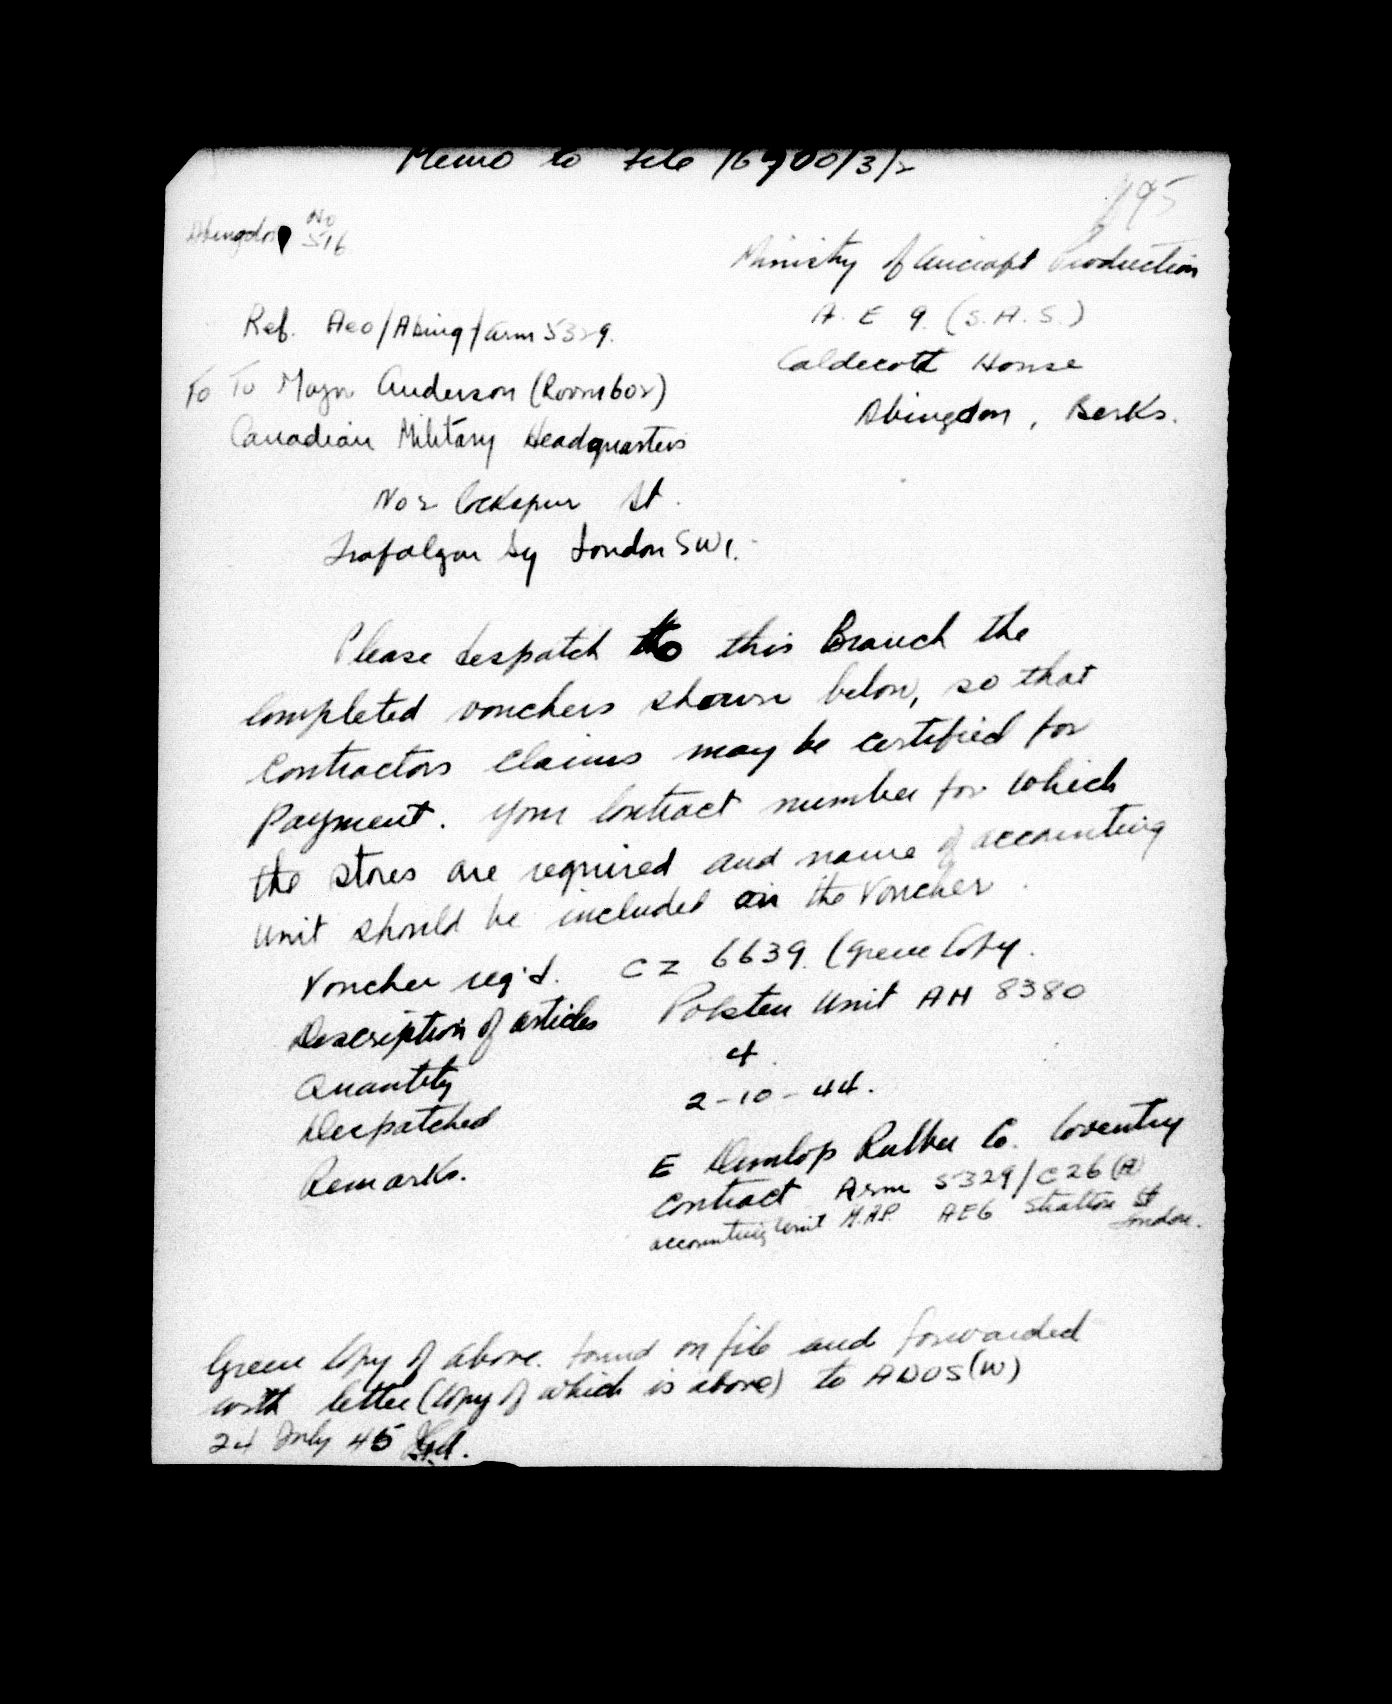 Memo to File 16900/3/2
195
Abingdon No 516
Ministry of Aircraft Production
A. E 9. (S.A.S.)
Caldecott House
Abingdon, Berks.
Ref. Aeo/Abing/arm 5329.
To To Major Anderson (Room 602)
Canadian Military Headquarters
No 2 Cockspur St.
Trafalgar Sq London SW1.
Please despatch to this Branch the
completed vouchers shown below, so that
contractors claims may be certified for
payment. Your Contract number for which
the stores are required and name of accounting
unit should be included on the Voucher.
Voucher req'd. CZ 6639. (Green Copy.
Description of articles Polsten Unit AH 8380
Quantity 4.
Despatched 2-10-44.
Remarks. E Dunlop Rubber Co. Coventry
Contract Arm 5329/C26(A)
accounting Unit M.A.P. AE6 Stratton St
London.
Green Copy of above found on file and forwarded
with letter (Copy of which is above) to ADOS(W)
24 July 45